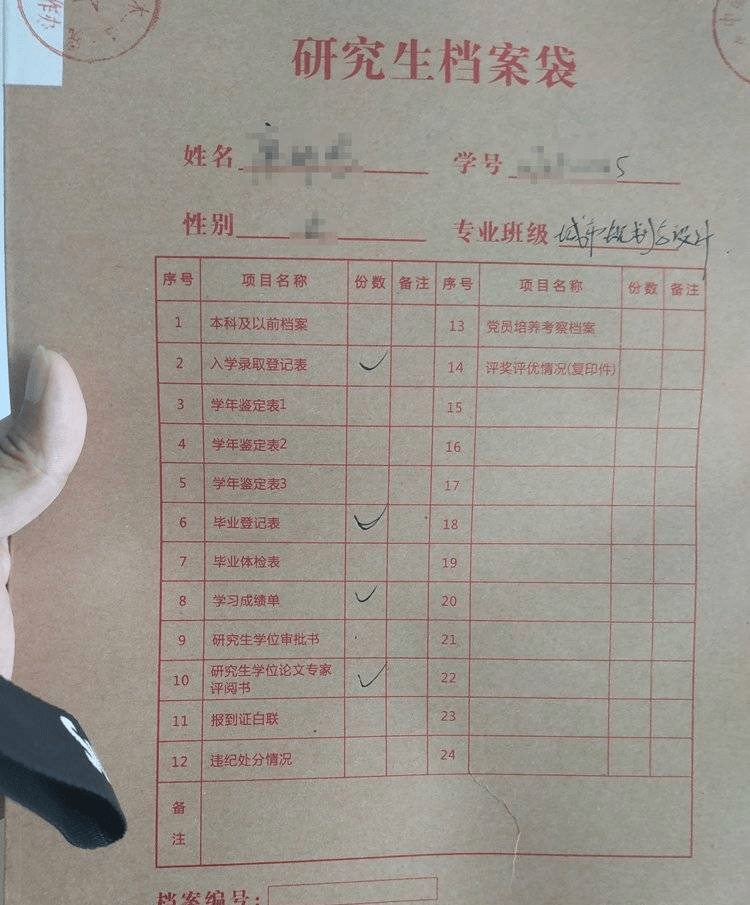 作办
研究生档案袋
姓名 学号 5
性别 专业班级 城市规划与设计
序号 项目名称 份数 备注 序号 项目名称 份数 备注
1 本科及以前档案 13 党员培养考察档案
2 入学录取登记表 ✓ 14 评奖评优情况(复印件)
3 学年鉴定表1 15
4 学年鉴定表2 16
5 学年鉴定表3 17
6 毕业登记表 ✓ 18
7 毕业体检表 19
8 学习成绩单 ✓ 20
9 研究生学位审批书 21
10 研究生学位论文专家 ✓ 22
评阅书
11 报到证白联 23
12 违纪处分情况 24
备
注
档案编号: